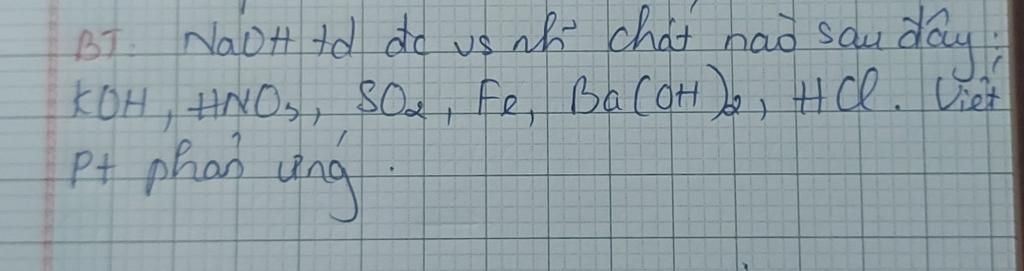 BT: NaOH td dc vs nh~ chất nào sau đây:
KOH, HNO3, SO2, Fe, Ba(OH)2, HCl. Viết
Pt phản ứng.